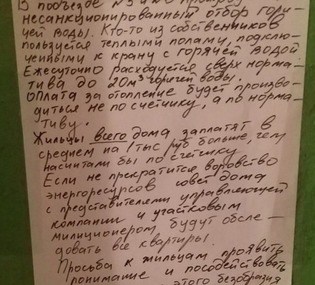 В подъезде №3
несанкционированный отбор горя-
чей воды. Кто-то из собственников
пользуется теплыми полами, подклю-
ченными к крану с горячей водой
Ежесуточно расходуется сверх норма-
тива до 20м³ горячей воды.
Оплата за отопление будет произво-
диться не по счетчику, а по норма-
тиву.
Жильцы всего дома заплатят в
среднем на 1тыс руб больше, чем
насчитали бы по счетчику
Если не прекратится воровство
энергоресурсов совет дома
с представителями управляющей
компании и участковым
милиционером будут обсле-
довать все квартиры.
Просьба к жильцам проявить
понимание и посодействовать
этого безобразия